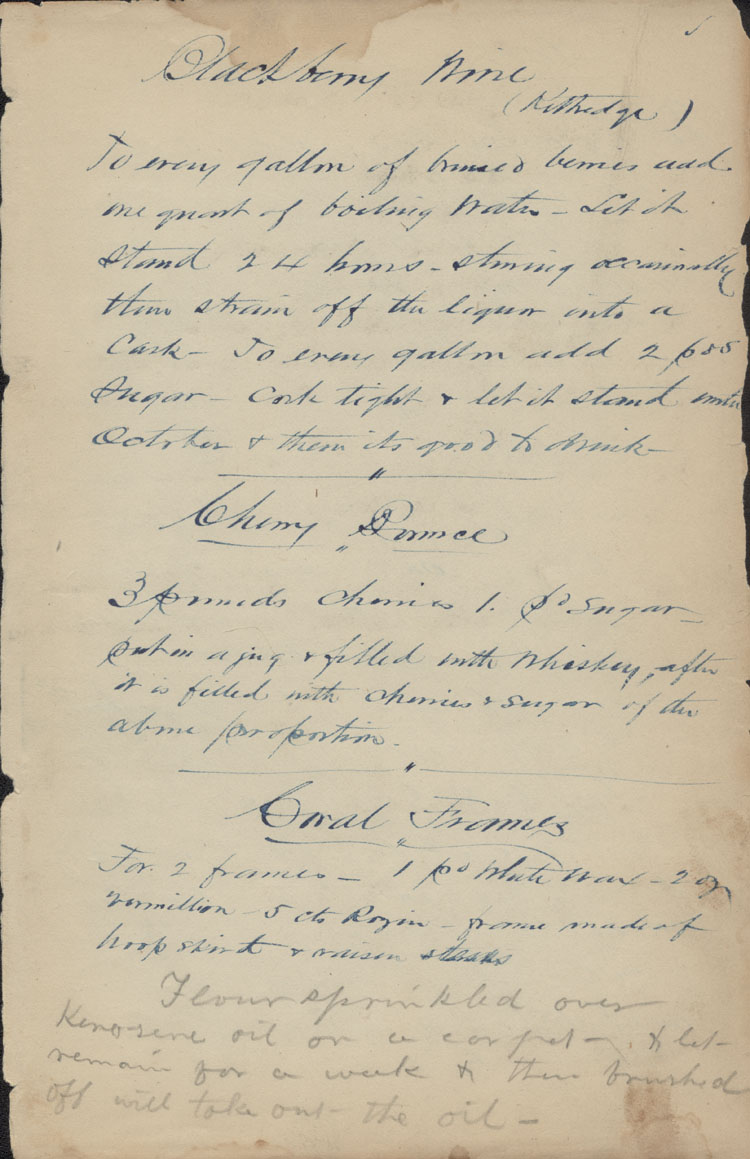 Blackberry Wine
(Kittredge)
To every gallon of bruised berries add
one quart of boiling water - Let it
stand 24 hours - stirring occasionally
then strain off the liquor into a
Cask - To every gallon add 2 pds
Sugar - Cork tight & let it stand until
October & then its good to drink -
Cherry Bounce
3 pounds cherries 1. pd Sugar -
put in a jug & filled with Whiskey, after
it is filled with cherries & sugar of the
above proportion.
Coral Frames
For. 2 frames - 1 pd White Wax - 2 oz
vermillion - 5 cts Rozin - frame made of
hoop skirt & raisin stems
Flour sprinkled over
Kerosene oil on a carpet - & let -
remain for a week & then brushed
off will take out the oil -